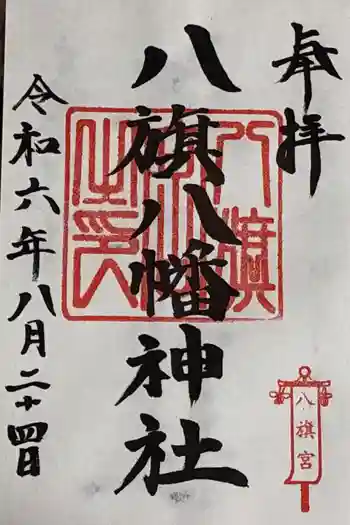 奉拝
八旗八幡神社
令和六年八月二十四日
八旗宮